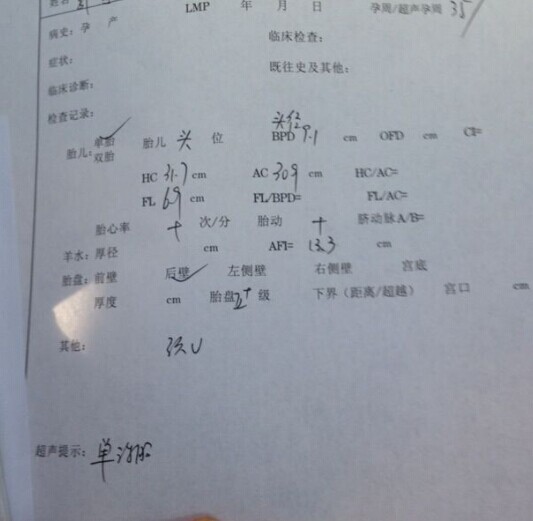 姓名
LMP 年 月 日 孕周/超声孕周 35
病史: 孕 产 临床检查:
症状: 既往史及其他:
临床诊断:
检查记录:
头径
胎儿: 单胎 双胎 胎儿 头 位 BPD 9.1 cm OFD cm CI=
HC 31.7 cm AC 309 cm HC/AC=
FL 69 cm FL/BPD= FL/AC=
胎心率 + 次/分 胎动 + 脐动脉A/B=
羊水: 厚径 cm AFI= 13.3 cm
胎盘: 前壁 后壁 左侧壁 右侧壁 宫底
厚度 cm 胎盘 2+ 级 下界(距离/超越) 宫口 cm
其他: U
超声提示: 单